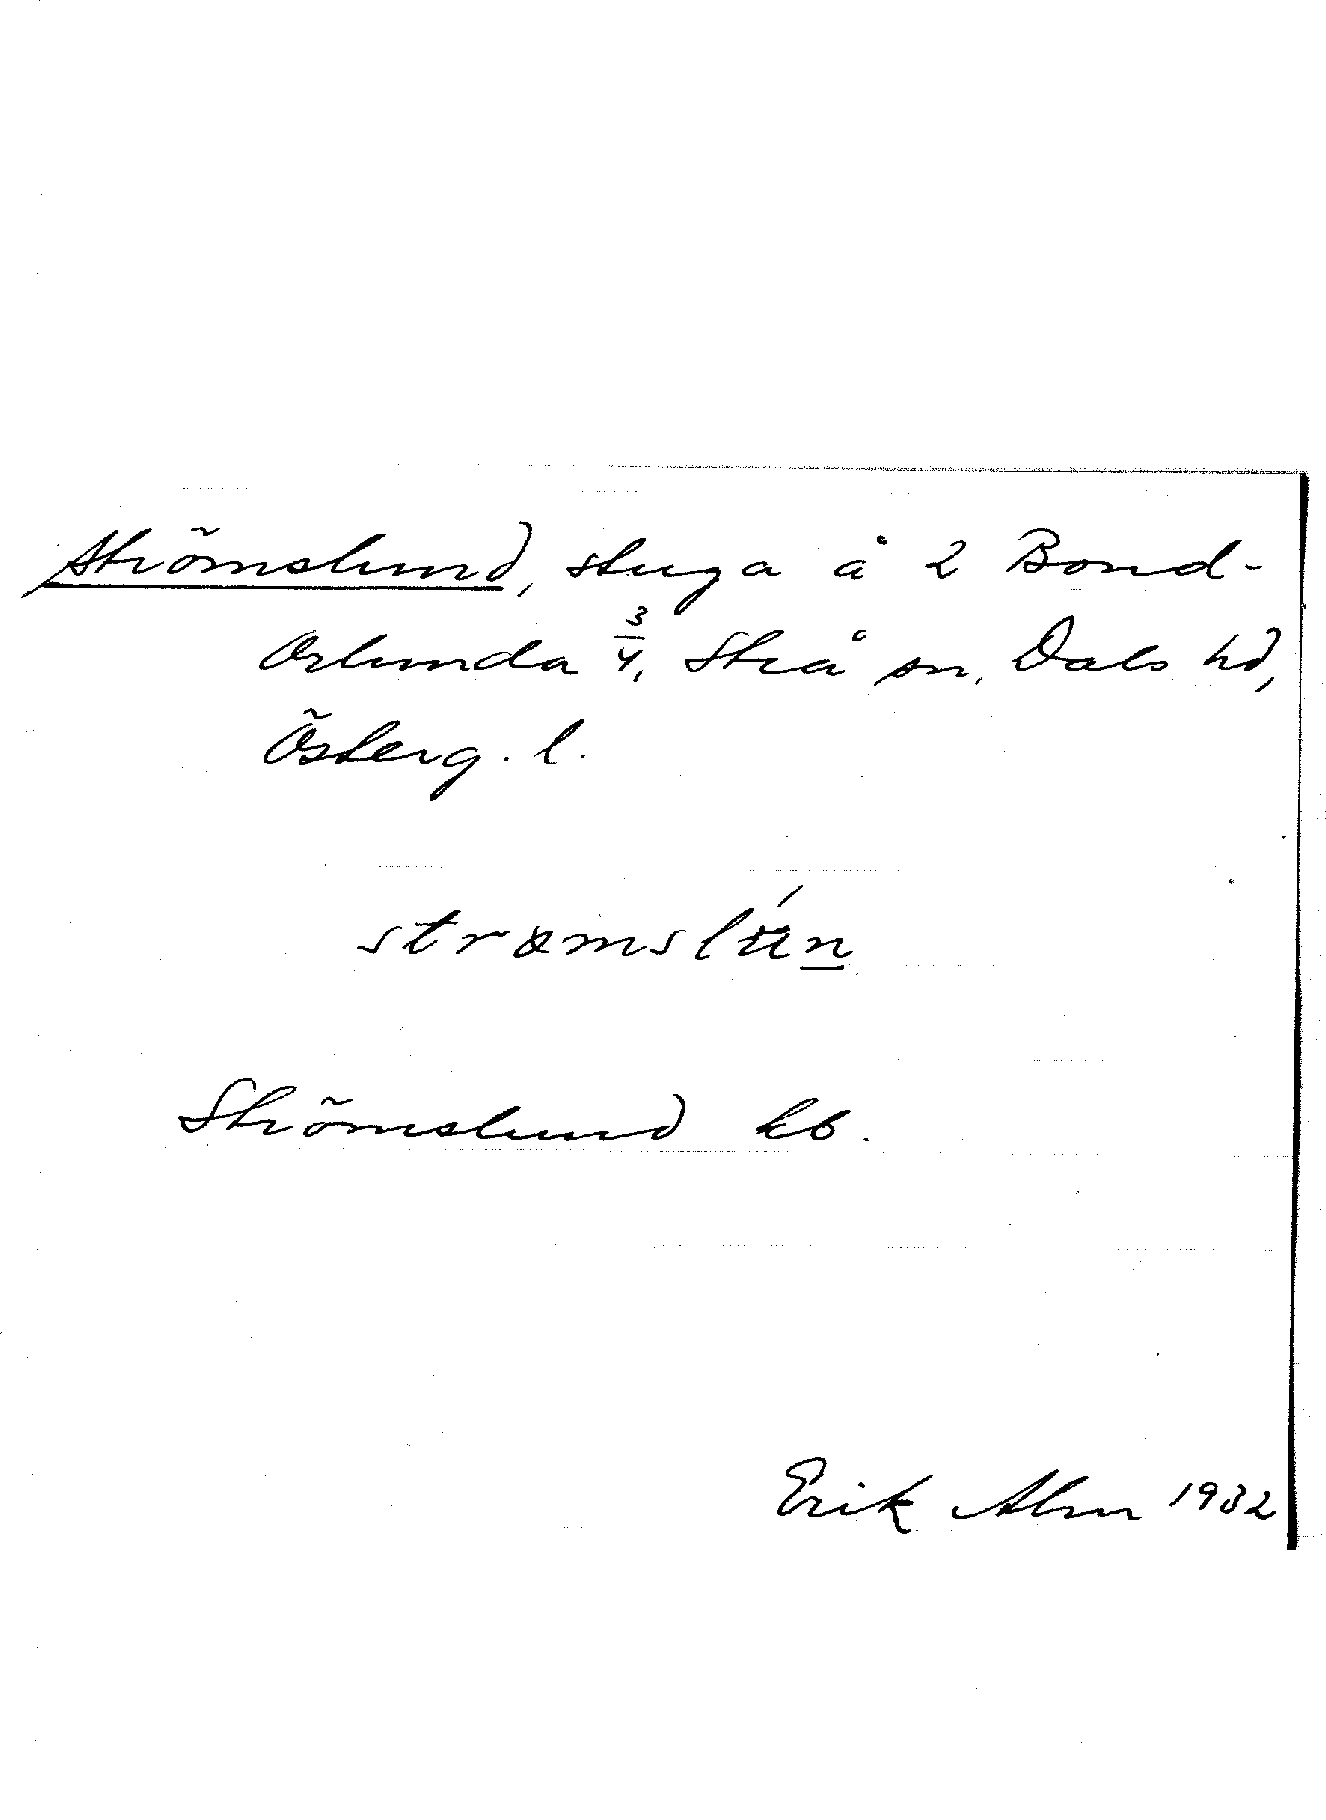 Strömslund, stuga å 2 Bond-
Orlunda 3/4, Strå sn, Dals hd,
Österg. l.
strømslʉ́n
Strömslund kb.
Erik Alm 1932